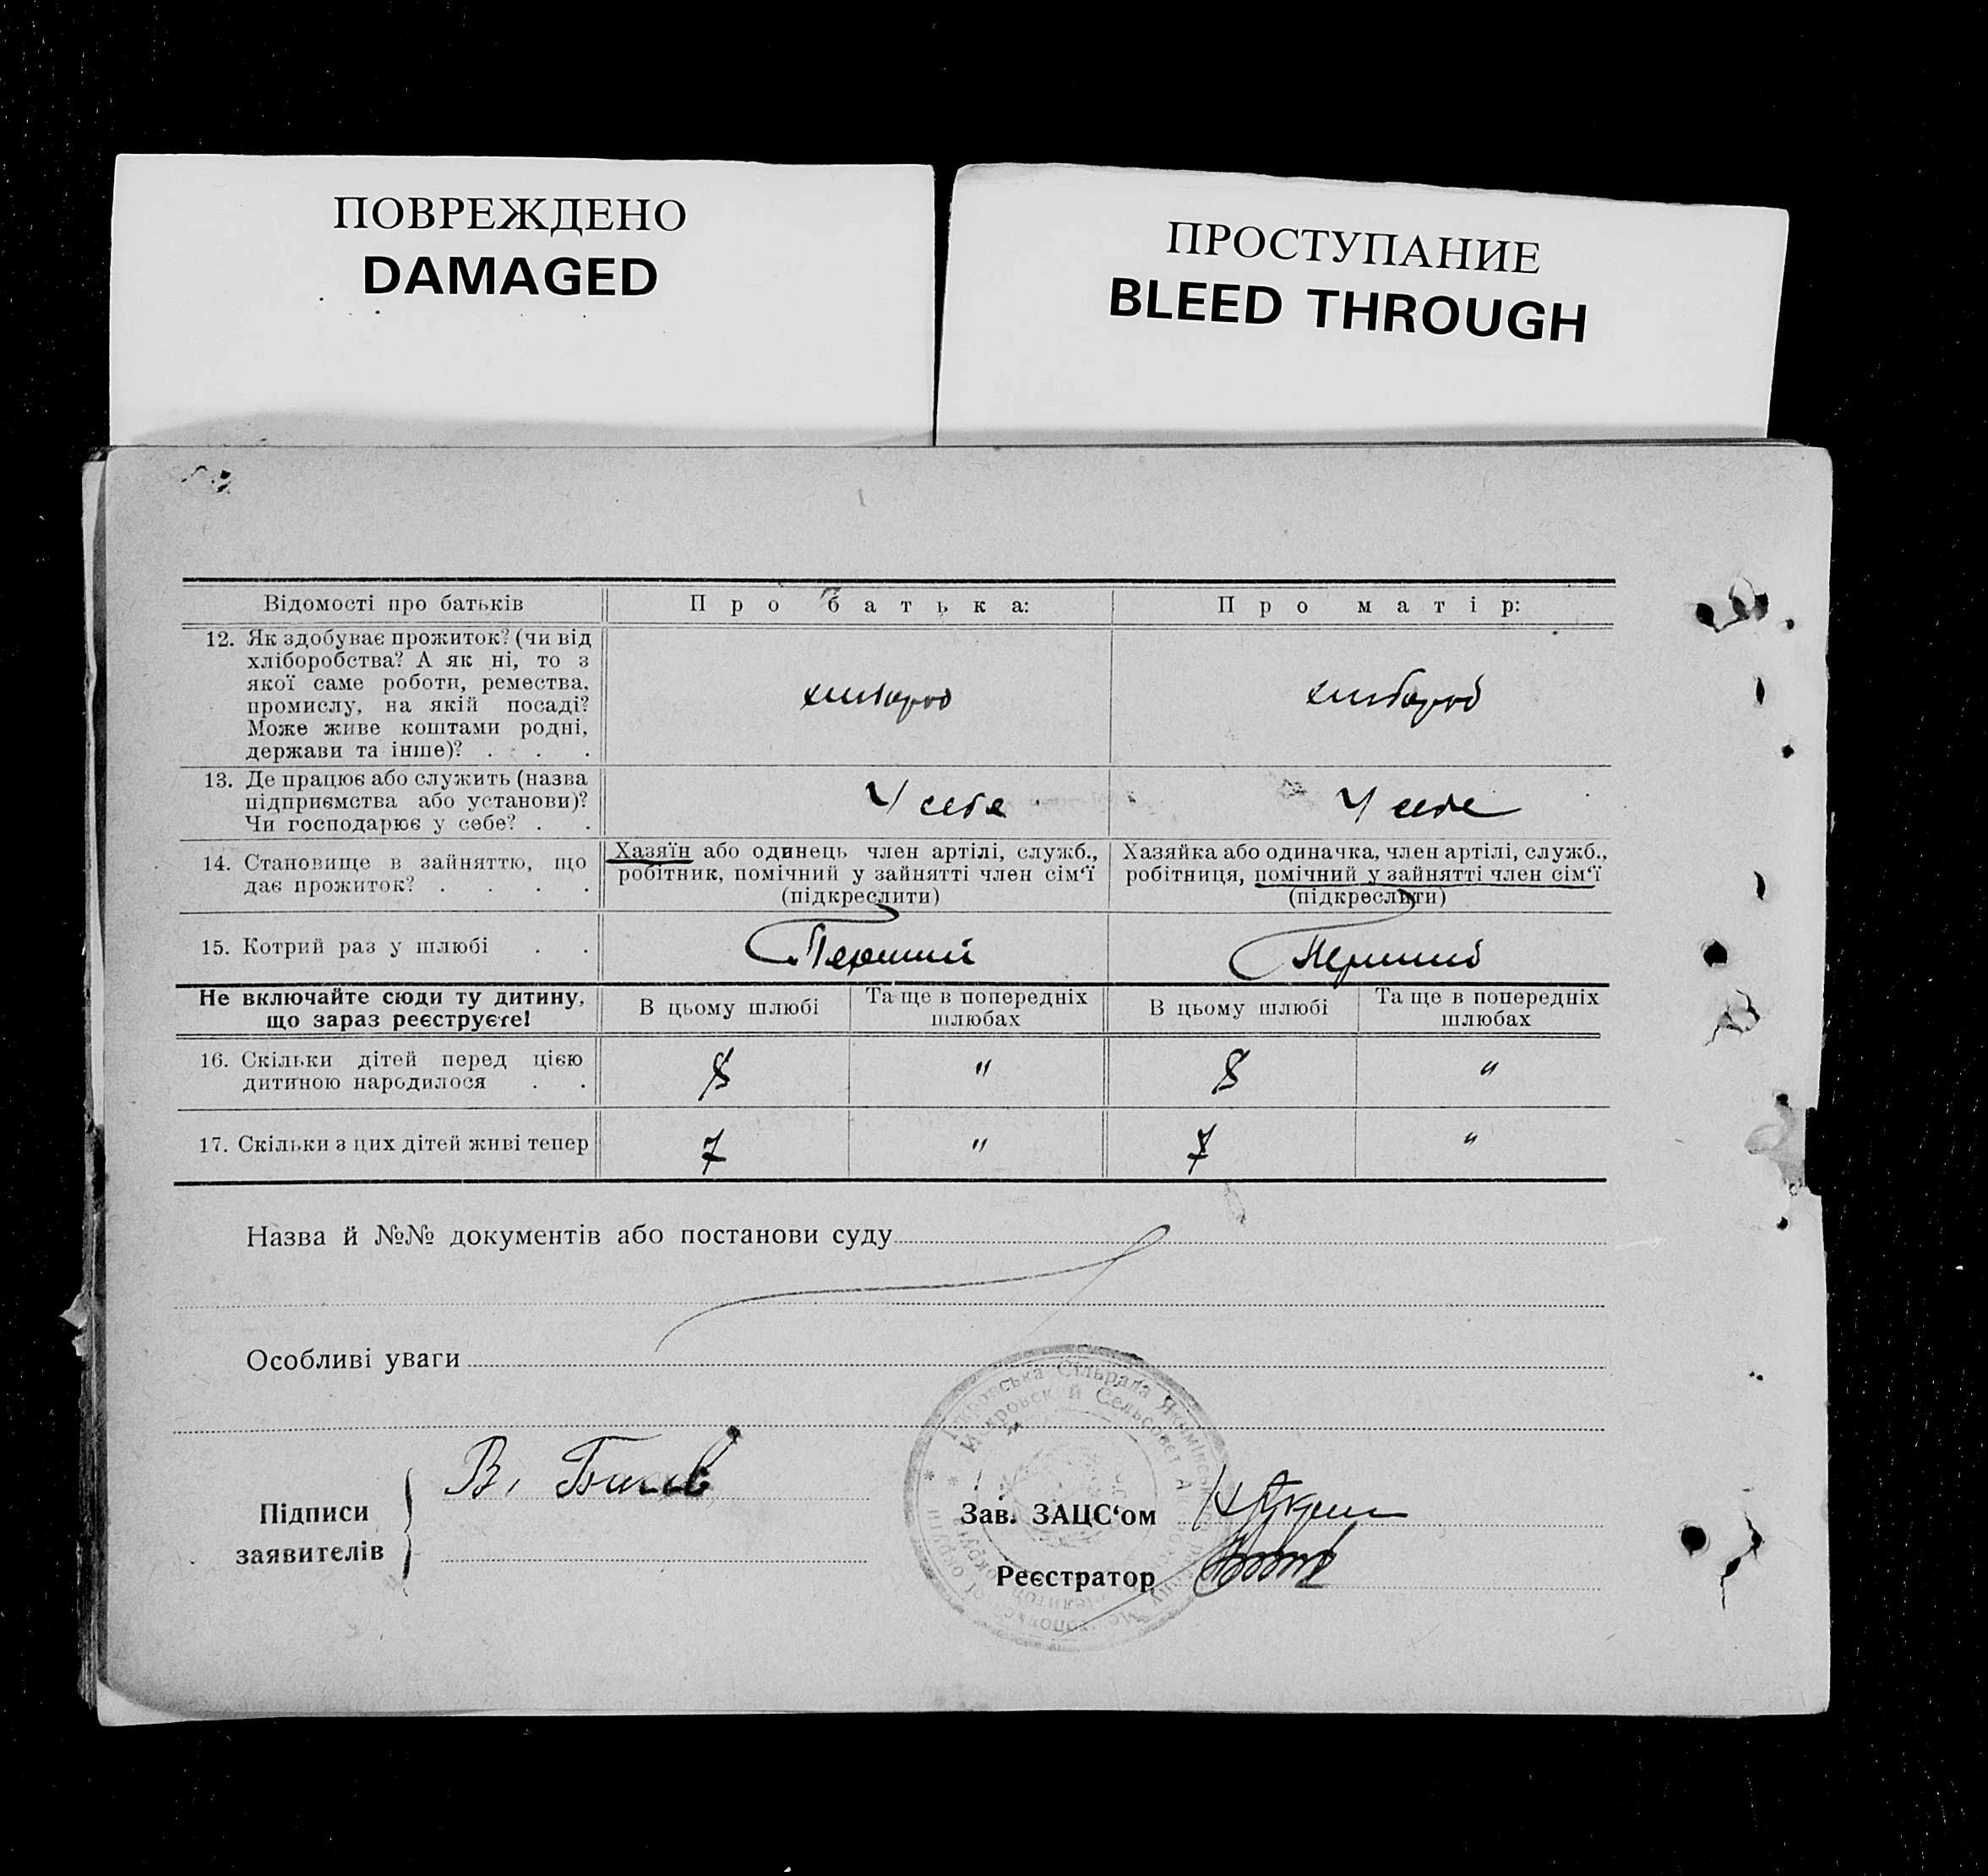 ПОВРЕЖДЕНО
DAMAGED
ПРОСТУПАНИЕ
BLEED THROUGH
Відомості про батьків
Про батька:
Про матір:
12. Як здобуває прожиток? (чи від
хліборобства? А як ні, то з
якої саме роботи, ремества,
промислу, на якій посаді?
Може живе коштами родні,
держави та інше)? . . .
хлібороб
хлібороб
13. Де працює або служить (назва
підприємства або установи)?
Чи господарює у себе? . .
У себе
У себе
14. Становище в зайняттю, що
дає прожиток? . . . .
Хазяїн або одинець член артілі, служб.,
робітник, помічний у зайнятті член сім‘ї
(підкреслити)
Хазяйка або одиначка, член артілі, служб.,
робітниця, помічний у зайнятті член сім‘ї
(підкреслити)
15. Котрий раз у шлюбі . .
Перший
Перший
Не включайте сюди ту дитину,
що зараз реєструєте!
В цьому шлюбі
Та ще в попередніх
шлюбах
В цьому шлюбі
Та ще в попередніх
шлюбах
16. Скільки дітей перед цією
дитиною народилося . .
8
"
8
"
17. Скільки з цих дітей живі тепер
7
"
7
"
Назва й №№ документів або постанови суду
Особливі уваги
Підписи
заявителів
В.
Зав. ЗАЦС‘ом
Реєстратор
Сільрада
Сельсовет